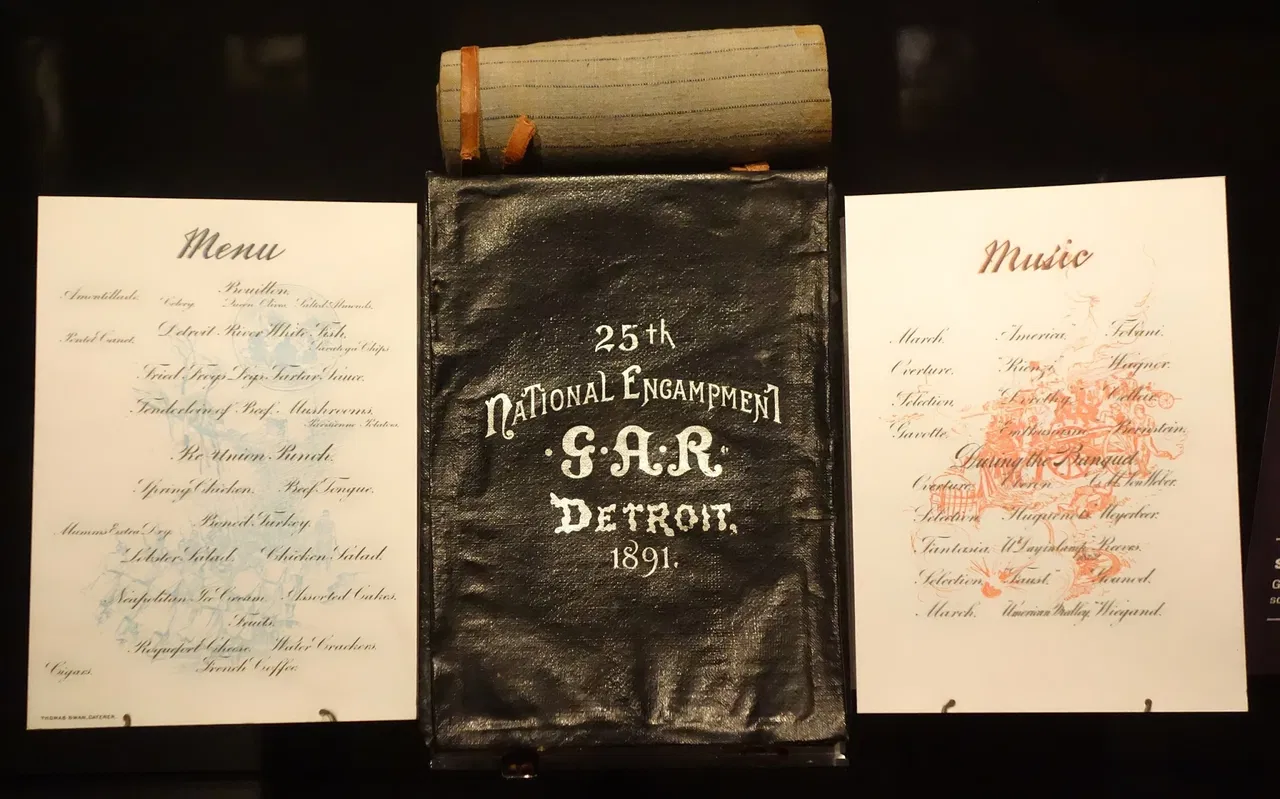 Menu
Amontillado. Bouillon.
Celery. Queen Olives. Salted Almonds.
Pontet Canet. Detroit River White Fish.
Saratoga Chips
Fried Frogs Legs. Tartar Sauce.
Tenderloin of Beef. Mushrooms.
Parisienne Potatoes.
Re-Union Punch.
Spring Chicken. Beef Tongue.
Mumms Extra Dry. Boned Turkey.
Lobster Salad. Chicken Salad
Neapolitan Ice Cream. Assorted Cakes.
Fruits.
Roquefort Cheese. Water Crackers.
French Coffee.
Cigars.
THOMAS SWAN, CATERER.
25th
NATIONAL ENCAMPMENT
G.A.R.
DETROIT,
1891.
Music
March. America. Tobani.
Overture. Rienzi. Wagner.
Selection. Dorothy. Cellier.
Gavotte. Enthusiasm. Bernstein.
During the Banquet.
Overture. Oberon. C. M. Von Weber.
Selection. Huguenots. Meyerbeer.
Fantasia. A Day in Camp. Reeves.
Selection. Faust. Gounod.
March. American Medley. Wiegand.